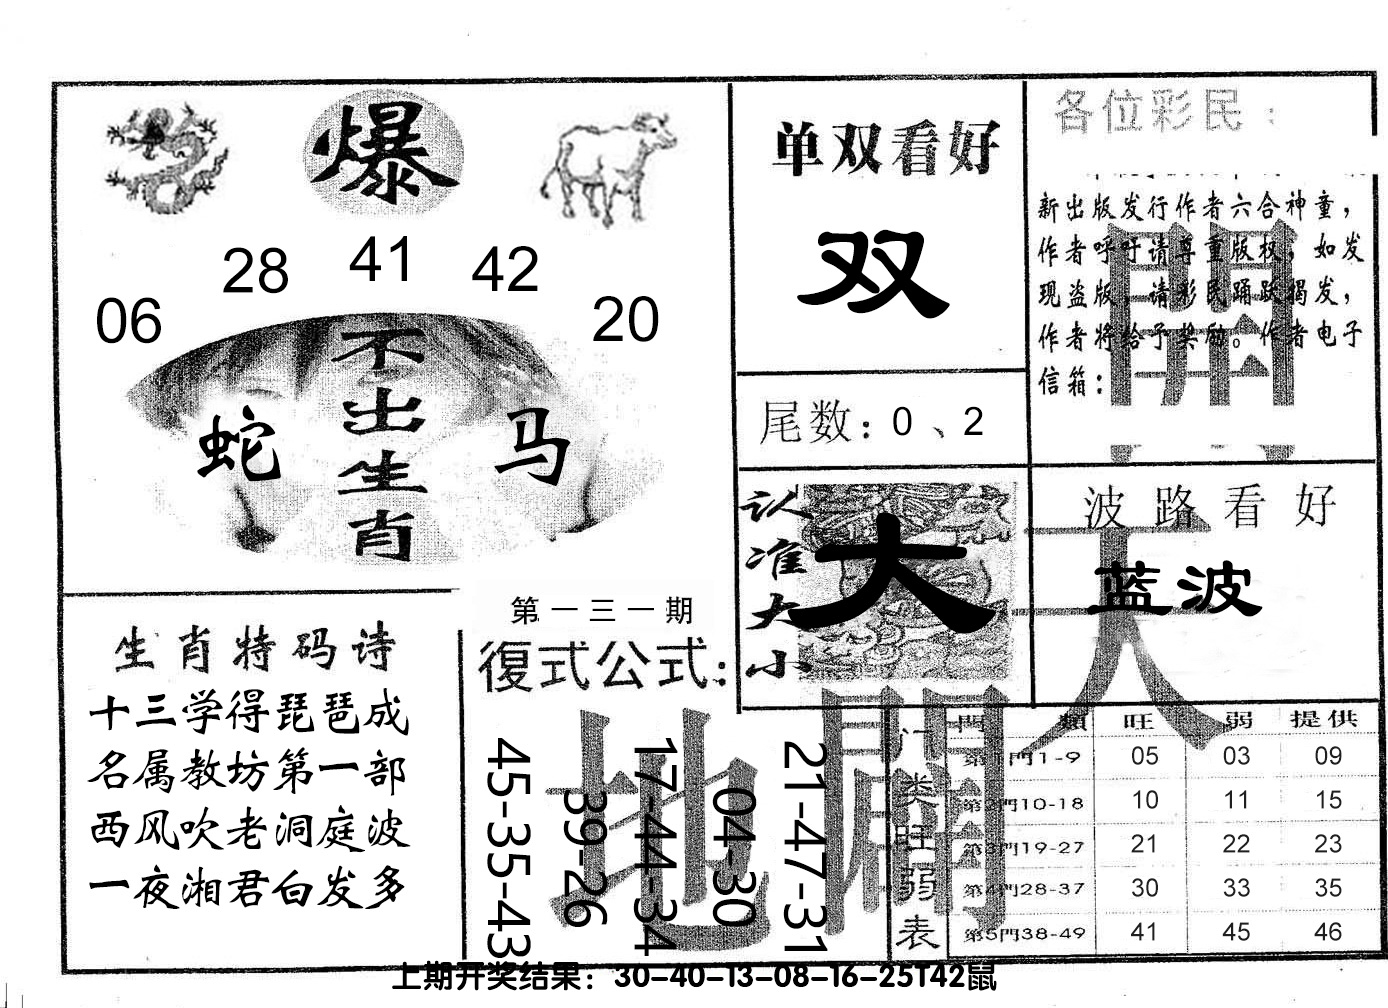 爆
28 41 42
06 20
不出生肖
蛇 马
单双看好
双
尾数：0、2
各位彩民：
新出版发行作者六合神童，
作者呼吁请尊重版权，如发
现盗版，请彩民踊跃揭发，
作者将给予奖励。作者电子
信箱：
開
认准大小
大
波路看好
蓝波
天
生肖特码诗
十三学得琵琶成
名属教坊第一部
西风吹老洞庭波
一夜湘君白发多
第一三一期
復式公式：
45-35-43
39-26
17-44-34
04-30
21-47-31
地
门类旺弱表
門 類 旺 弱 提供
第1門1-9 05 03 09
第2門10-18 10 11 15
第3門19-27 21 22 23
第4門28-37 30 33 35
第5門38-49 41 45 46
上期开奖结果：30-40-13-08-16-25T42鼠